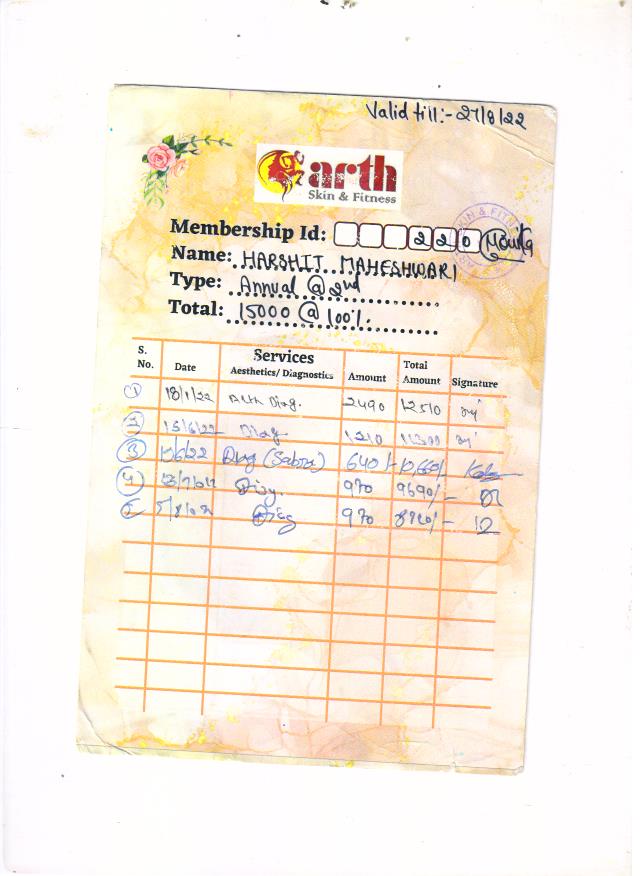 Valid till:- 27/8/22
arth
Skin & Fitness
SKIN & FITN
Membership Id: 220
Name: HARSHIT MAHESHWARI
Type: Annual @ 2nd
Total: 15000 @ 100%.
S. No. Date Services Aesthetics/ Diagnostics Amount Total Amount Signature
1 18/1/22 Arth Diag. 2490 12510
2 15/6/22 Diag 1210 11300
3 Diag 640/- 10660/-
4 970 9690/-
5 970